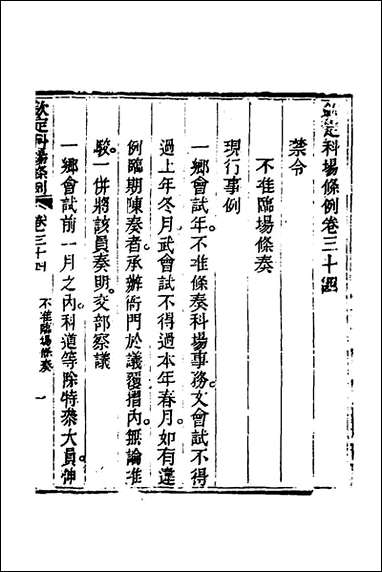 欽定科場條例卷三十四
禁令
不准臨場條奏
現行事例
一鄉會試年不准條奏科場事務文會試不得
過上年冬月武會試不得過本年春月如有違
例臨期陳奏者承辦衙門於議覆摺內無論准
駁一併將該員奏明交部察議
一鄉會試前一月之內科道等除特叅大員伸
欽定科場條例 卷三十四 不准臨場條奏 一